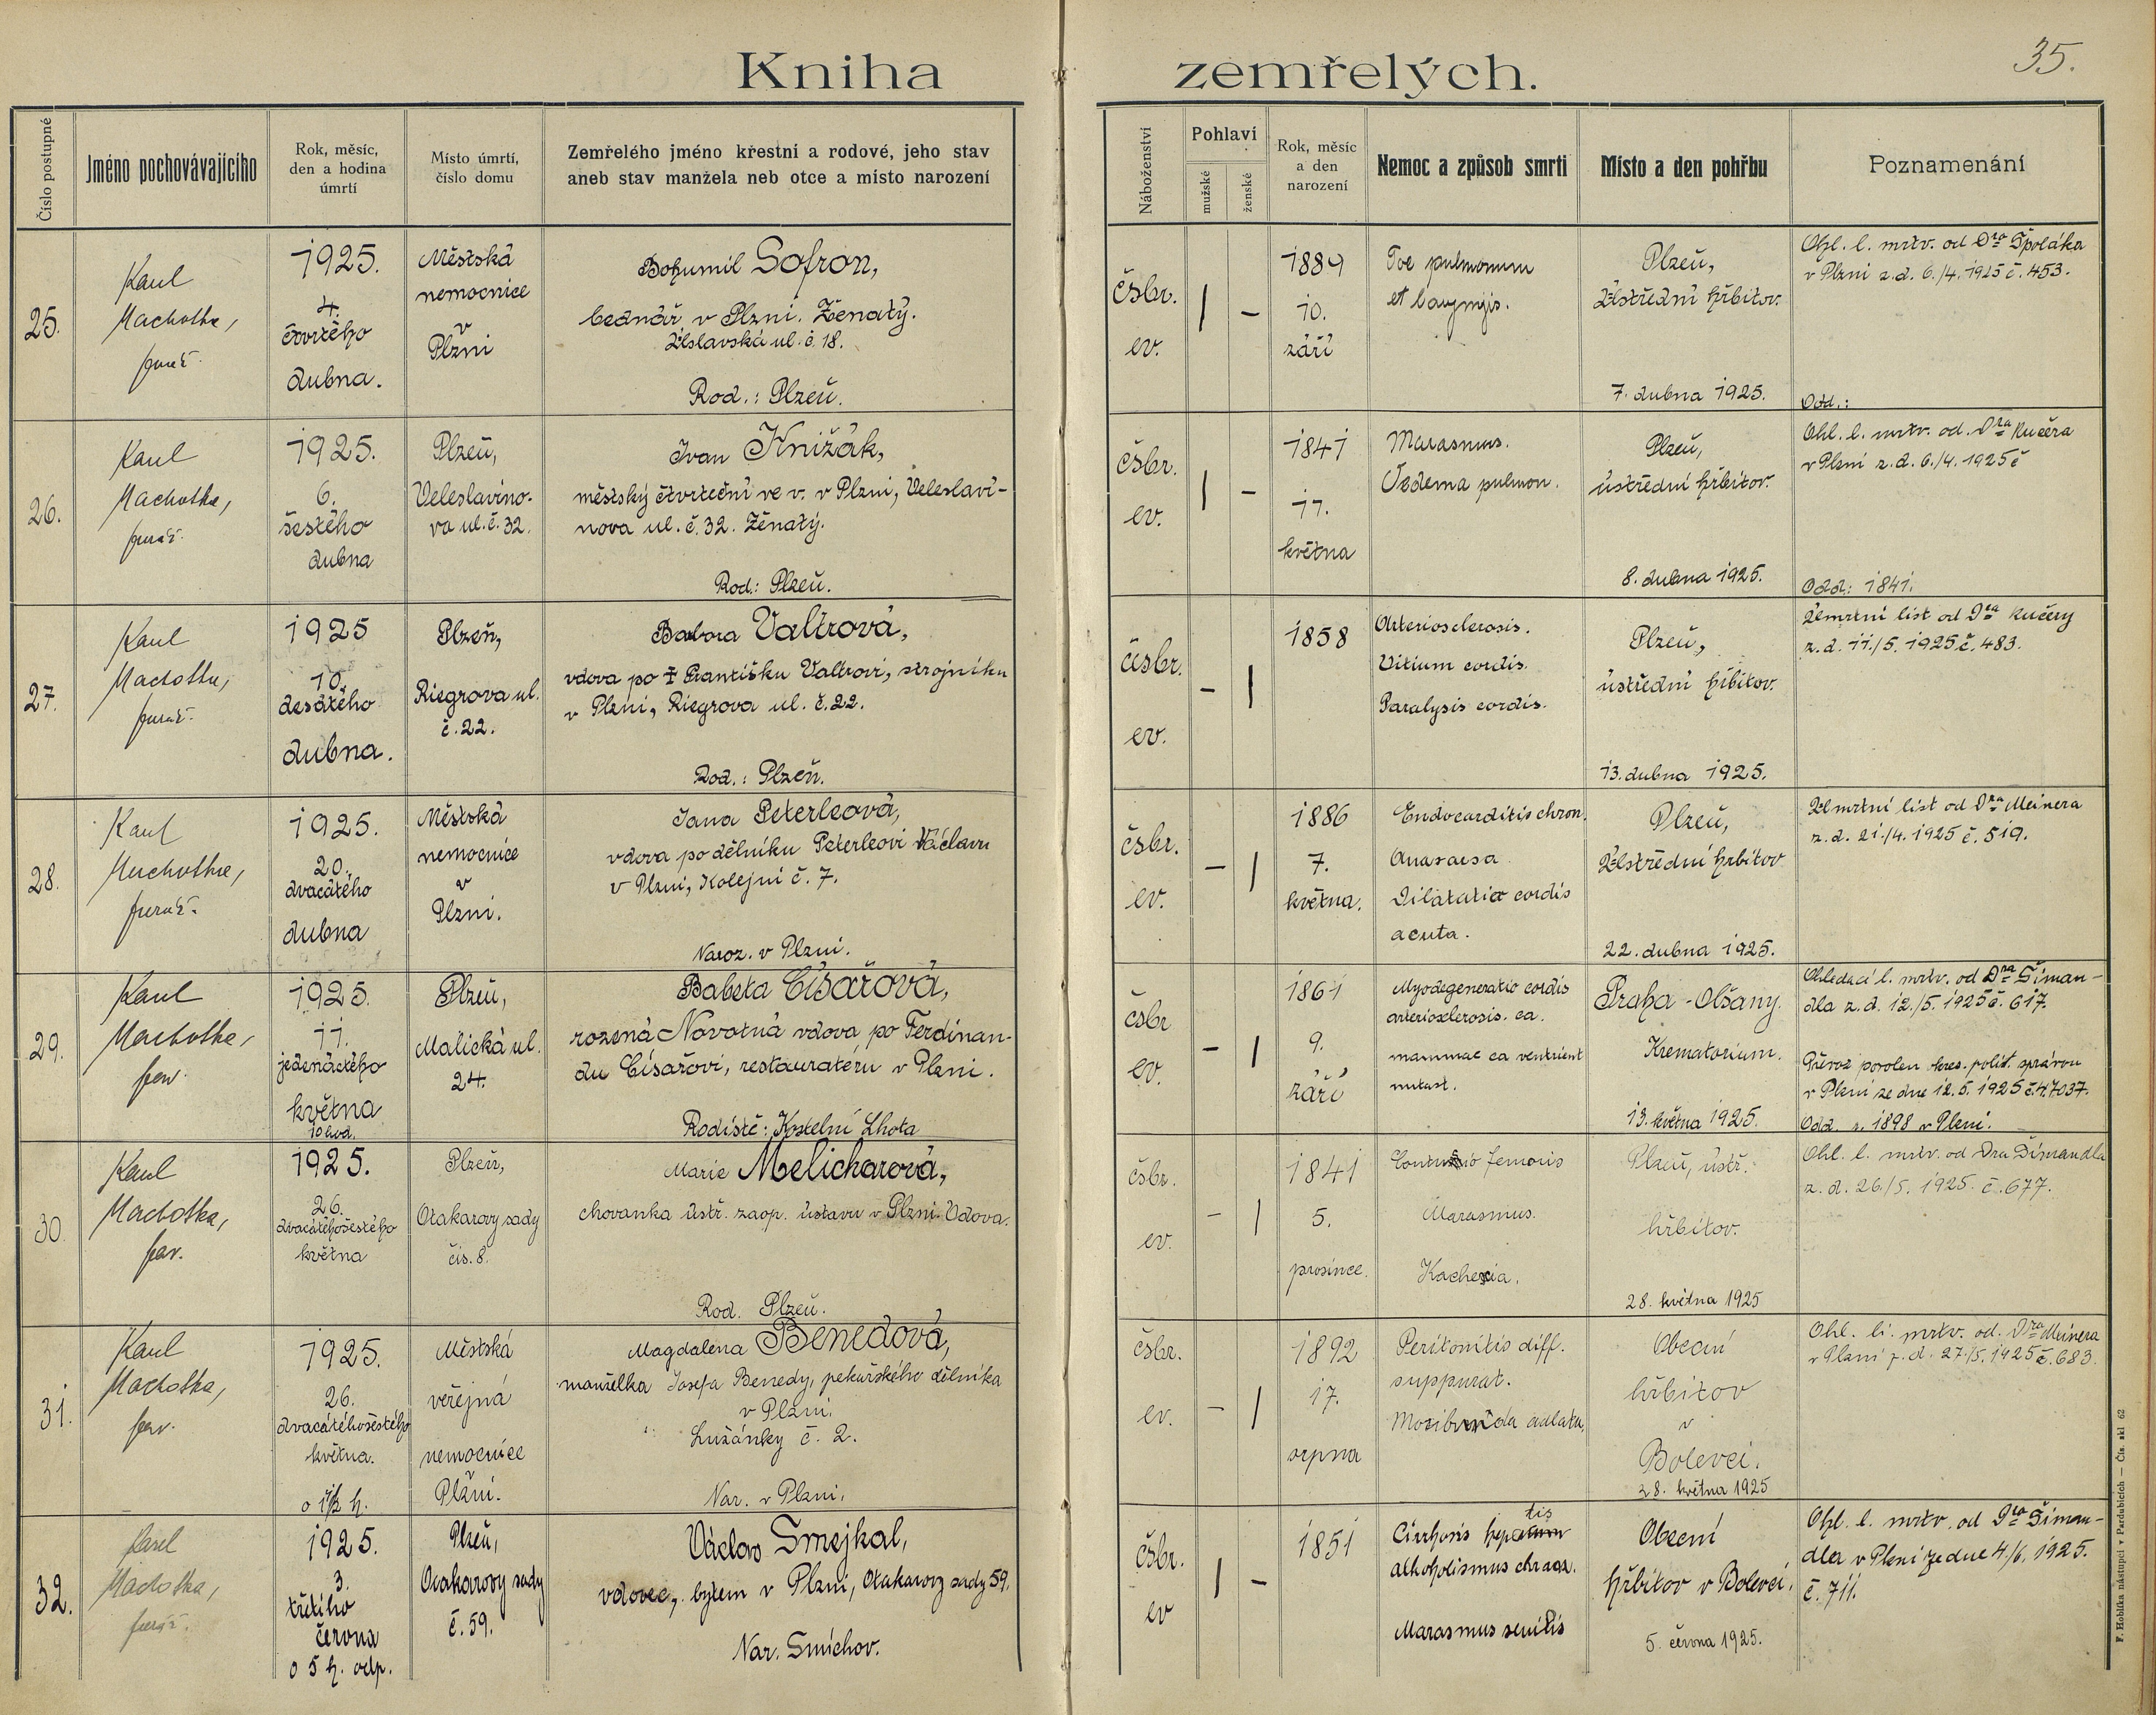 35.
Kniha zemřelých.
Číslo postupné
Jméno pochovávajícího
Rok, měsíc,
den a hodina
úmrtí
Místo úmrtí,
číslo domu
Zemřelého jméno křestní a rodové, jeho stav
aneb stav manžela neb otce a místo narození
Náboženství
Pohlaví
mužské
ženské
Rok, měsíc
a den
narození
Nemoc a způsob smrti
Místo a den pohřbu
Poznamenání
25.
Karel
Machotka,
farář.
1925.
4.
čtvrtého
dubna.
Městská
nemocnice
v
Plzni
Bohumil Sofron,
bednář v Plzni. Ženatý.
Úslavská ul. č. 18.
Rod.: Plzeň.
čsbr.
ev.
/ –
1889
10.
září
Tbc pulmonum
et laryngis.
Plzeň,
Ústřední hřbitov.
7. dubna 1925.
Ohl. l. mrtv. od Dra Špoláka
v Plzni z. d. 6./4. 1925 č. 453.
Odd.:
26.
Karel
Machotka,
farář.
1925.
6.
šestého
dubna
Plzeň,
Veleslavíno-
va ul. č. 32.
Ivan Knižák,
městský čtvrteční ve v. v Plzni, Veleslaví-
nova ul. č. 32. Ženatý.
Rod.: Plzeň.
čsbr.
ev.
/ –
1841
17.
května
Marasmus.
Oedema pulmon.
Plzeň,
ústřední hřbitov.
8. dubna 1925.
Ohl. l. mrtv. od. Dra Kučera
v Plzni z. d. 6./4. 1925 č
Odd: 1841.
27.
Karel
Machotka,
farář.
1925
10.
desátého
dubna.
Plzeň,
Riegrova ul.
č. 22.
Barbora Valtrová,
vdova po † Františku Valtrovi, strojníku
v Plzni, Riegrova ul. č. 22.
Rod.: Plzeň.
čsbr.
ev.
– /
1858
Arteriosclerosis.
Vitium cordis.
Paralysis cordis.
Plzeň,
ústřední hřbitov.
13. dubna 1925.
Úmrtní list od Dra Kučery
z. d. 11./5. 1925 č. 483.
28.
Karel
Machotka,
farář.
1925.
20.
dvacátého
dubna
Městská
nemocnice
v
Plzni.
Jana Peterleová,
vdova po dělníku Peterleovi Václavu
v Plzni, Kolejní č. 7.
Naroz. v Plzni.
čsbr.
ev.
– /
1886
7.
května.
Endocarditis chron.
Anasarsa
Dilatatio cordis
acuta.
Plzeň,
Ústřední hřbitov
22. dubna 1925.
Úmrtní list od Dra Meinera
z. d. 21./4. 1925 č. 519.
29.
Karel
Machotka,
far.
1925.
11.
jedenáctého
května
10 hod.
Plzeň,
Malická ul.
24.
Babeta Císařová,
rozená Novotná vdova po Ferdinan-
du Císařovi, restauratéru v Plzni.
Rodiště: Kostelní Lhota
čsbr
ev.
– /
1861
9.
září
Myodegeneratio cordis
arteriosclerosis. ca.
mammae ca ventrient
mitast.
Praha - Olšany.
Krematorium.
13. května 1925.
Ohledací l. mrtv. od Dra Šiman-
dla z. d. 12./5. 1925 č. 617.
Převoz povolen okres. polit. správou
v Plzni ze dne 12. 5. 1925 č. 47037.
Odd. r. 1898 v Plzni.
30.
Karel
Machotka,
far.
1925.
26.
dvacátéhošestého
května
Plzeň,
Otakarovy sady
čís. 8.
Marie Melicharová,
chovanka ústř. zaop. ústavu v Plzni. Vdova.
Rod. Plzeň.
čsbr.
ev.
– /
1841
5.
prosince.
Contusio femoris
Marasmus.
Kachexia.
Plzeň, ústř.
hřbitov.
28. května 1925
Ohl. l. mrtv. od Dra Šimandla
z. d. 26./5. 1925. č. 677.
31.
Karel
Machotka,
far.
1925.
26.
dvacátéhošestého
května.
o 1/2 h.
Městská
veřejná
nemocnice
Plzni.
Magdalena Benedová,
manželka Josefa Benedy, pekařského dělníka
v Plzni.
Lužánky č. 2.
Nar. v Plzni.
čsbr.
ev.
– /
1892
17.
srpna
Peritonitis diff.
suppurat.
Moribunda adlata.
Obecní
hřbitov
v
Bolevci.
28. května 1925
Ohl. li. mrtv. od. Dra Meinera
v Plzni z. d. 27./5. 1925 č. 683.
32.
Karel
Machotka,
farář.
1925.
3.
třetího
června
o 5 h. odp.
Plzeň,
Otakarovy sady
č. 59.
Václav Smejkal,
vdovec, bytem v Plzni, Otakarovy sady 59.
Nar. Smíchov.
čsbr.
ev
/ –
1851
Cirrhosis hepatis
alkoholismus chron.
Marasmus senilis
Obecní
hřbitov v Bolevci.
5. června 1925.
Ohl. l. mrtv. od Dra Šiman-
dla v Plzni ze dne 4./6. 1925.
č. 711.
F. Hoblíka nástupci v Pardubicích — Čís. skl 62